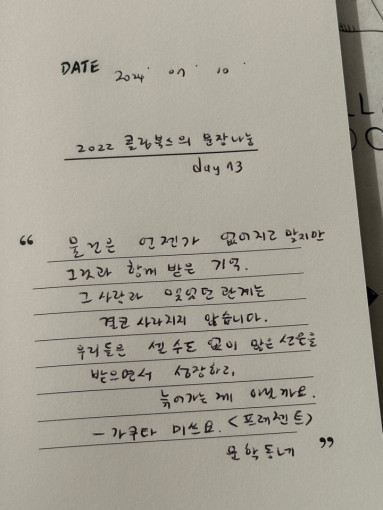 DATE 2024 07 10
2022 클링북스의 문장나눔
day 13
“ 물건은 언젠가 없어지고 말지만
그것과 함께 받은 기억.
그 사람과 있었던 관계는
결코 사라지지 않습니다.
우리들은 셀 수도 없이 많은 선물을
받으면서 성장하고,
늙어가는 게 아닐까요.
- 가쿠타 미쓰요. <프레젠트>
문학동네 ”